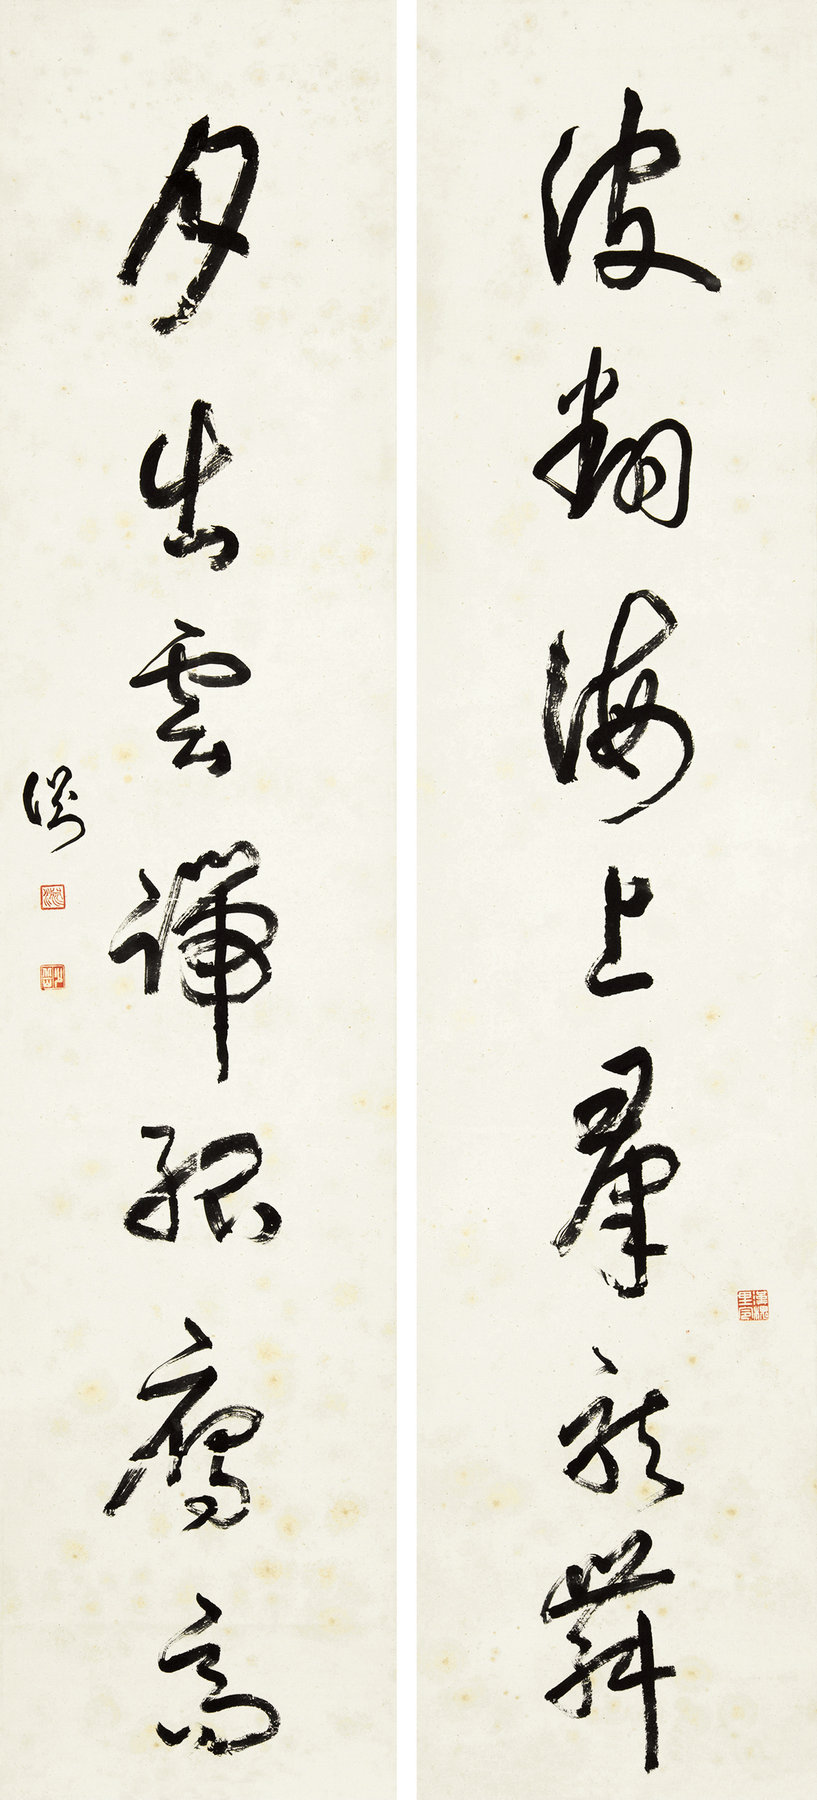 波翻海上羣龍舞
月出雲端孤鷹高